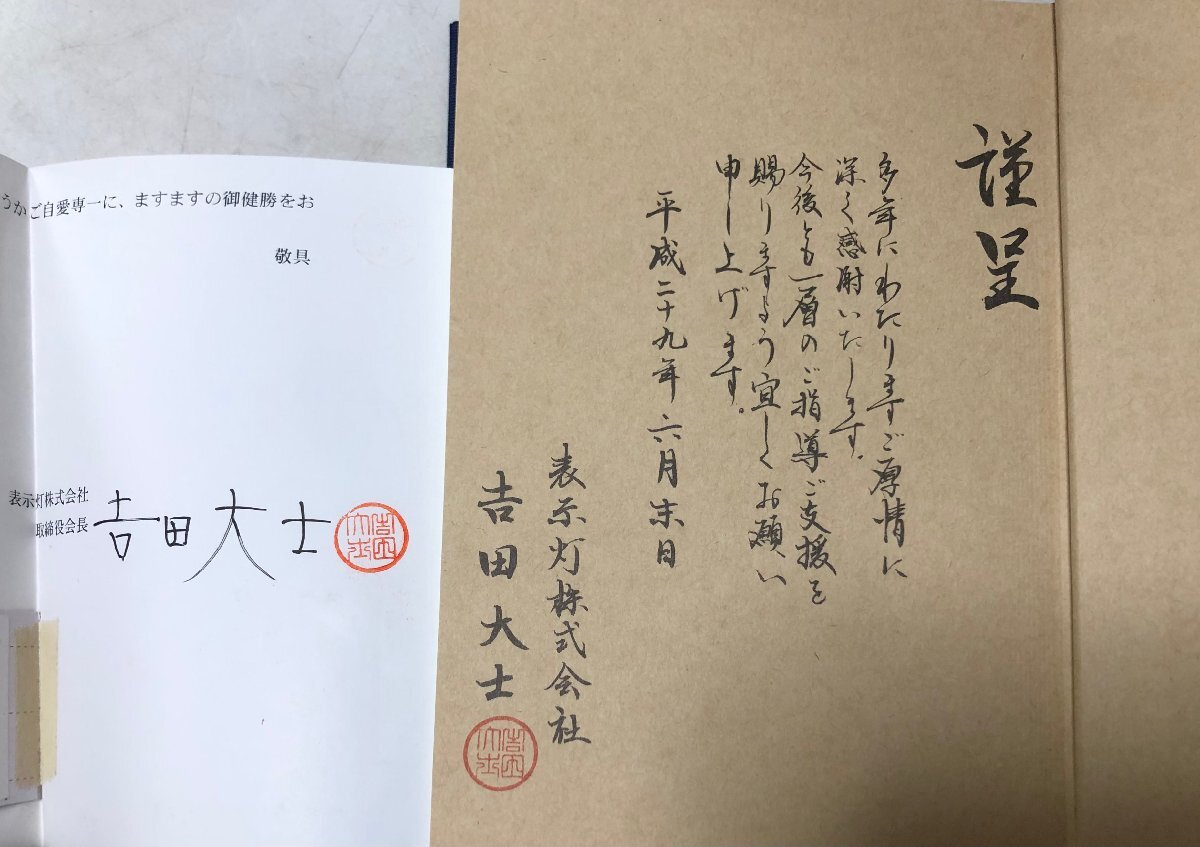 謹呈
多年にわたりますご厚情に
深く感謝いたします。
今後とも一層のご指導ご支援を
賜りますよう宜しくお願い
申し上げます。
平成二十九年六月末日
表示灯株式会社
吉田大士
うかご自愛専一に、ますますの御健勝をお
敬具
表示灯株式会社
取締役会長
吉田大士